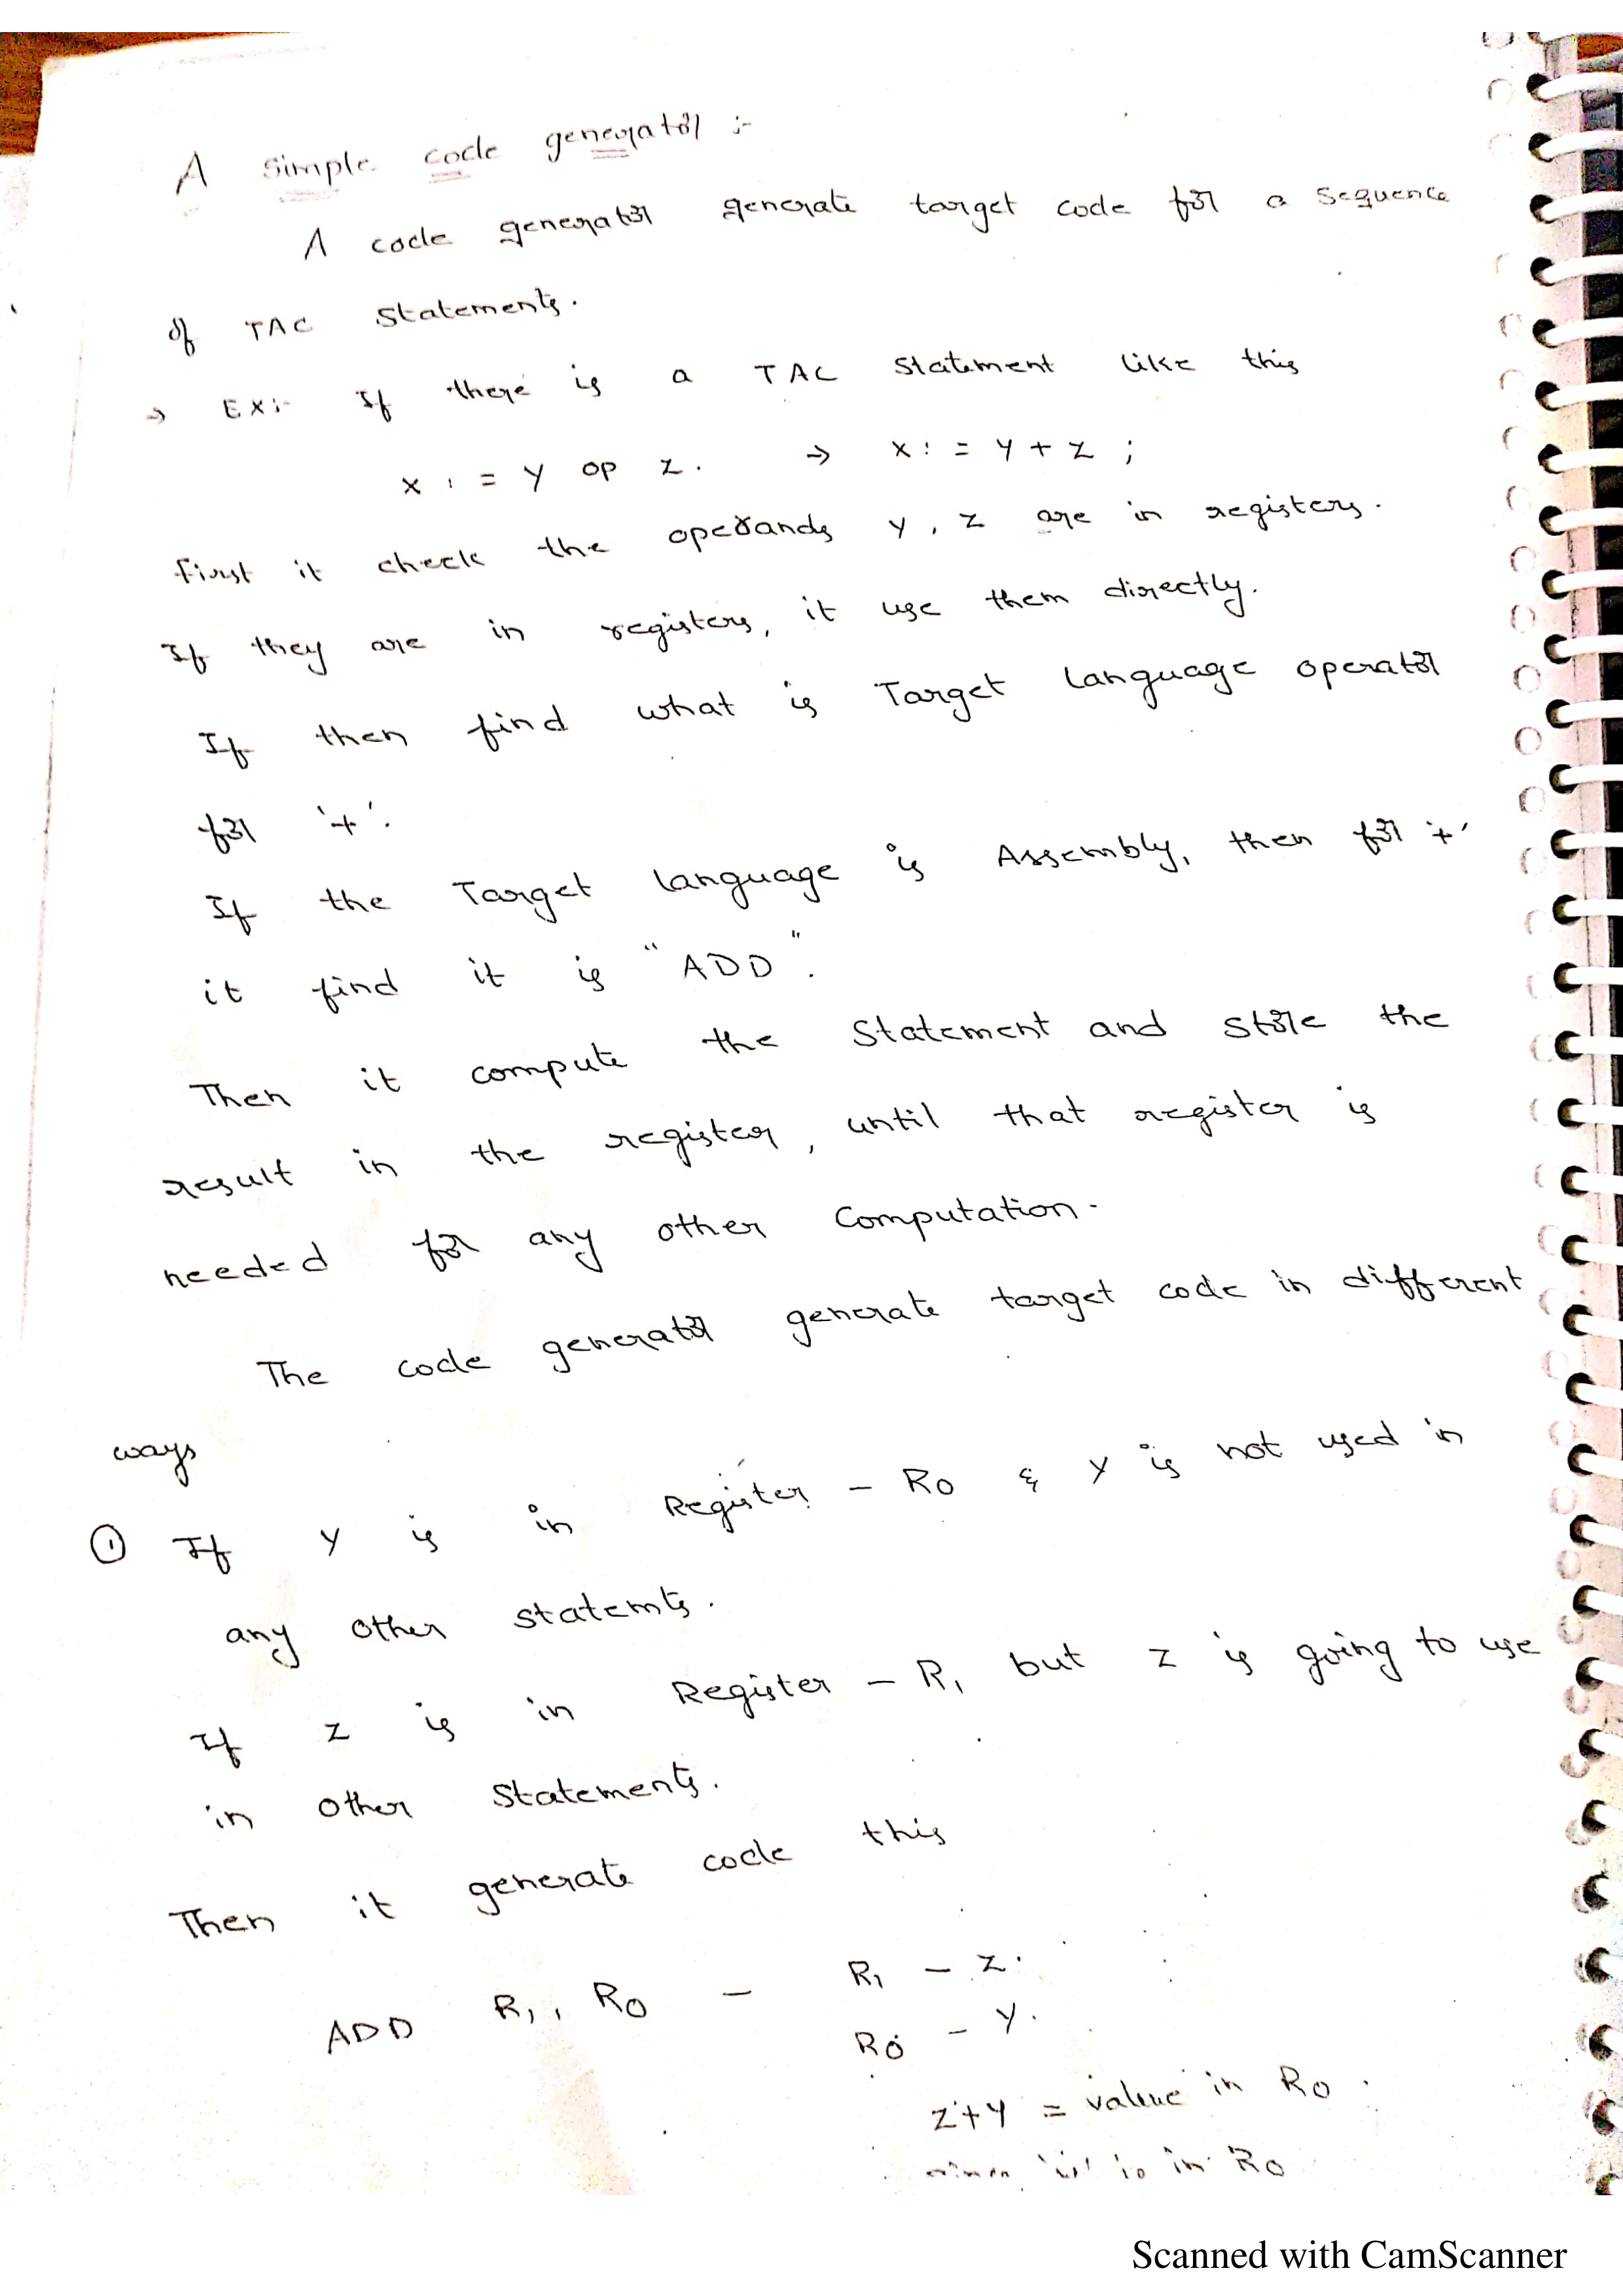 A Simple code generator :-
A code generator generate target code for a Sequence
of TAC Statements.
→ EX:- If there is a TAC Statement like this
X := Y op Z. → X := Y + Z ;
first it check the operands Y, Z are in registers.
If they are in registers, it use them directly.
If then find what is Target Language operator
for '+'.
If the Target language is Assembly, then for '+'
it find it is "ADD".
Then it compute the Statement and store the
result in the register, until that register is
needed for any other Computation.
The code generator generate target code in different
ways
① If Y is in Register - R0 & Y is not used in
any other statemts.
If Z is in Register - R1 but Z is going to use
in other Statements.
Then it generate code this
ADD R1, R0 - R1 - Z.
R0 - Y.
Z+Y = value in R0.
is in R0
Scanned with CamScanner